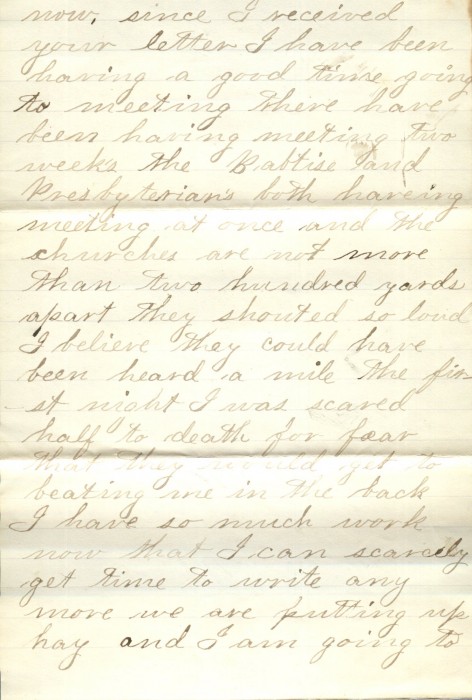 now, since I received
your letter I have been
having a good time going
to meeting there have
been having meeting two
weeks the Babtise and
Presbyterians both hareing
meeting at once and the
churches are not more
than two hundred yards
apart they shouted so loud
I believe they could have
been heard a mile the fir
-st night I was scared
half to death for fear
that they would get to
beating me in the back
I have so much work
now that I can scarcely
get time to write any
more we are putting up
hay and I am going to